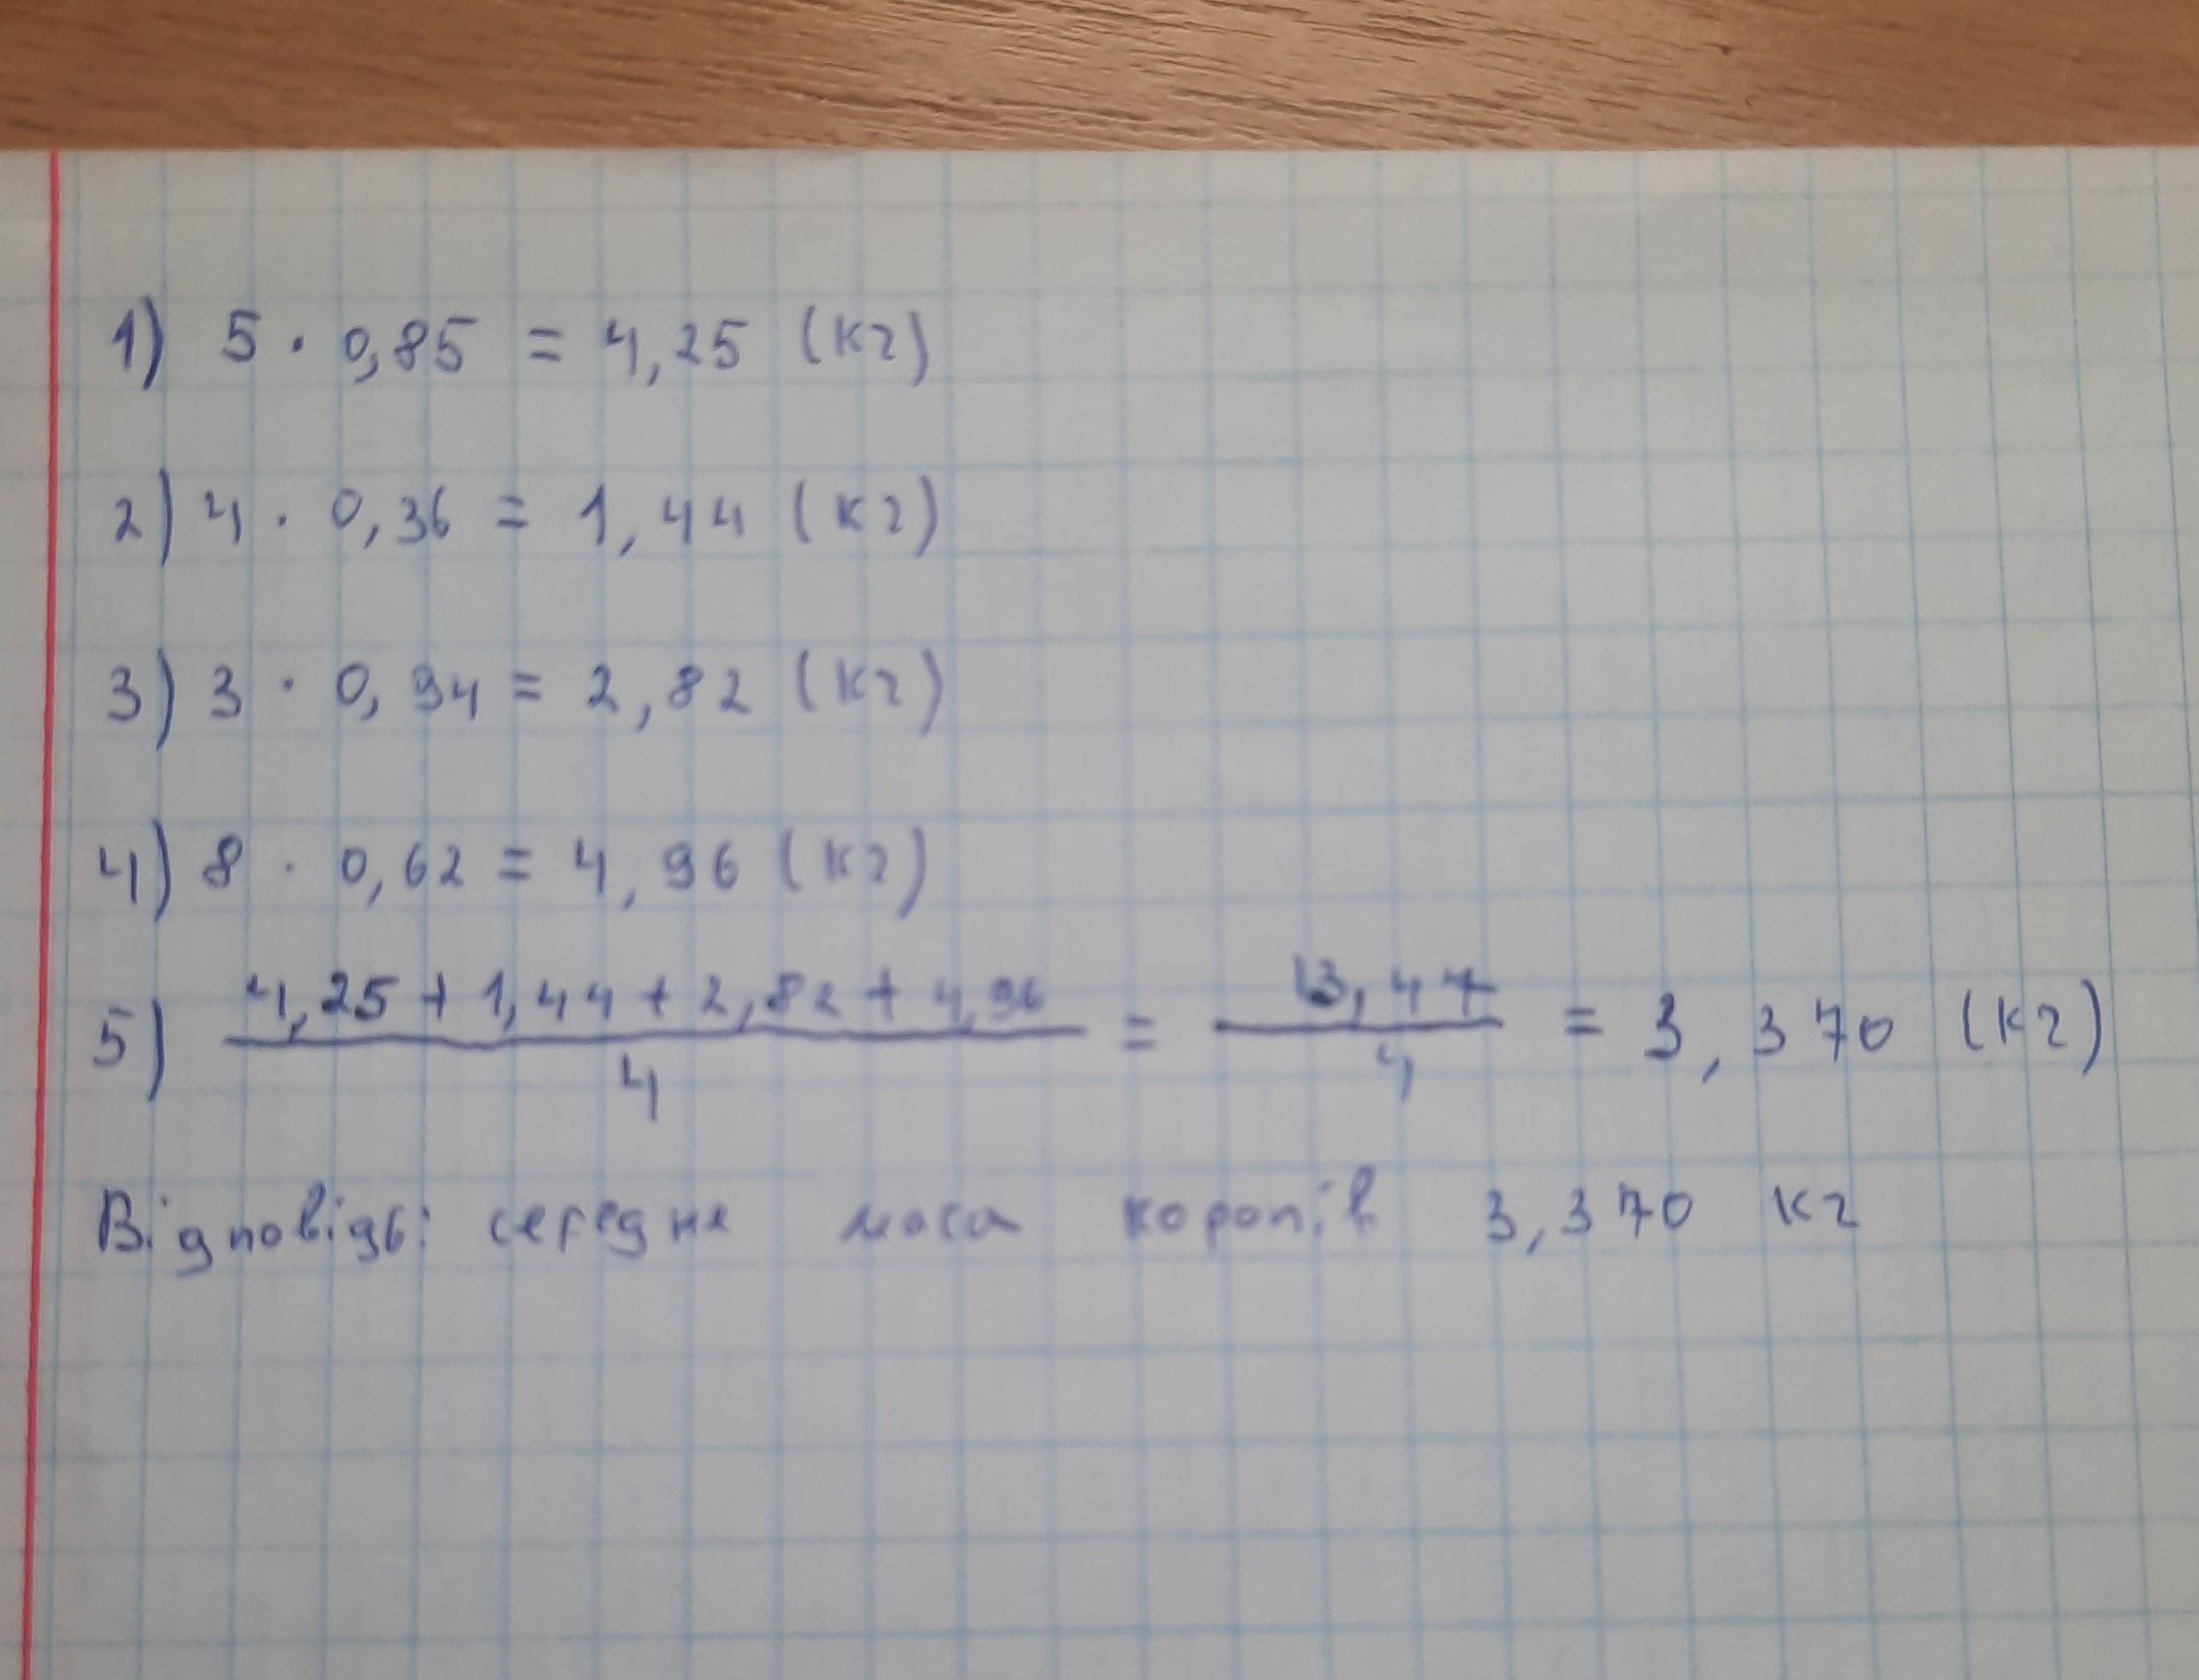 1) 5 · 0,85 = 4,25 (кг)
2) 4 · 0,36 = 1,44 (кг)
3) 3 · 0,94 = 2,82 (кг)
4) 8 · 0,62 = 4,96 (кг)
5) (4,25 + 1,44 + 2,82 + 4,96)/4 = 13,47/4 = 3,370 (кг)
Відповідь: середня маса коропів 3,370 кг